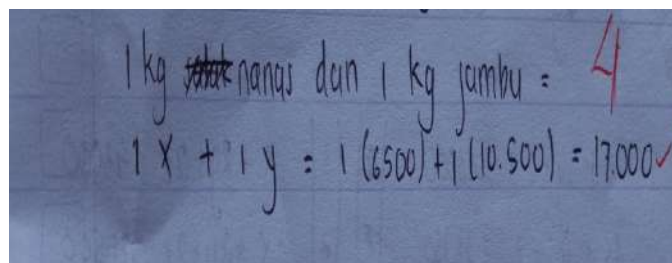 1 kg nanas dan 1 kg jambu = 4
1 x + 1 y = 1 (6500) + 1 (10.500) = 17.000 ✓